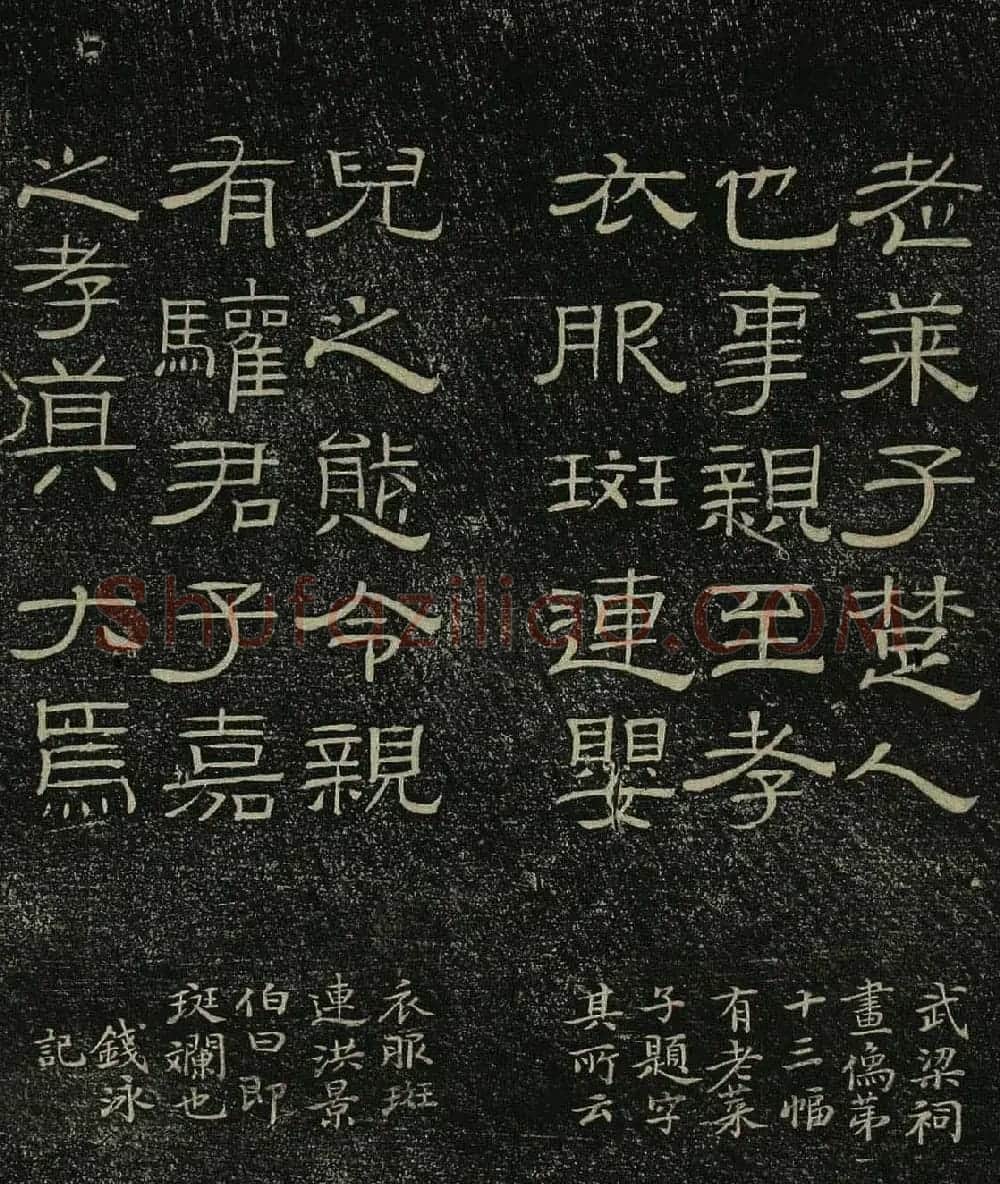 老萊子楚人
也事親至孝
衣服斑連嬰
兒之態令親
有驩君子嘉
之孝莫大焉
武梁祠
畫像苐
十三幅
有老萊
子題字
其所云
衣服斑
連洪景
伯曰即
斑斕也
錢泳
記
Shufaziliao.COM